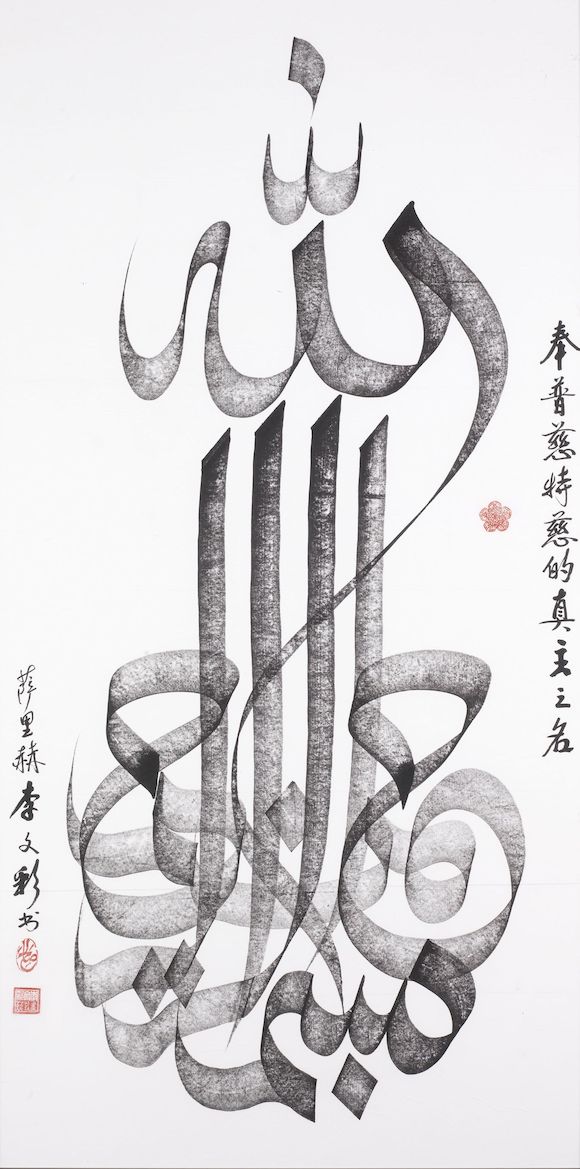 奉普慈特慈的真主之名
بسم الله الرحمن الرحيم
萨里赫李文彩书